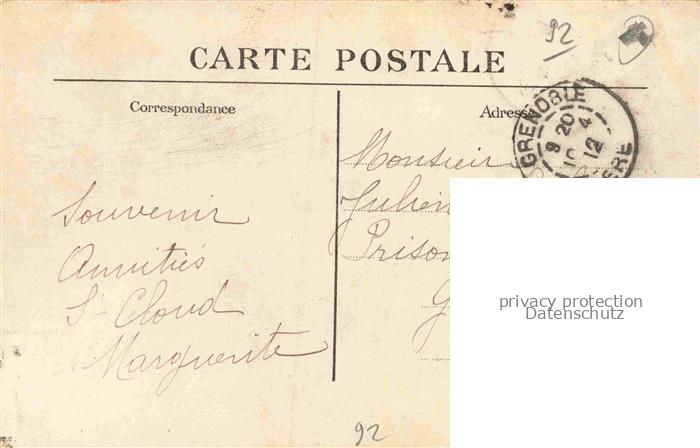 92
CARTE POSTALE
Correspondance
Adresse
GRENOBLE
9 20
10 4
12
ISERE
Monsieur
Julien
Prison
G
Souvenir
Amitiés
St Cloud
Marguerite
privacy protection
Datenschutz
92